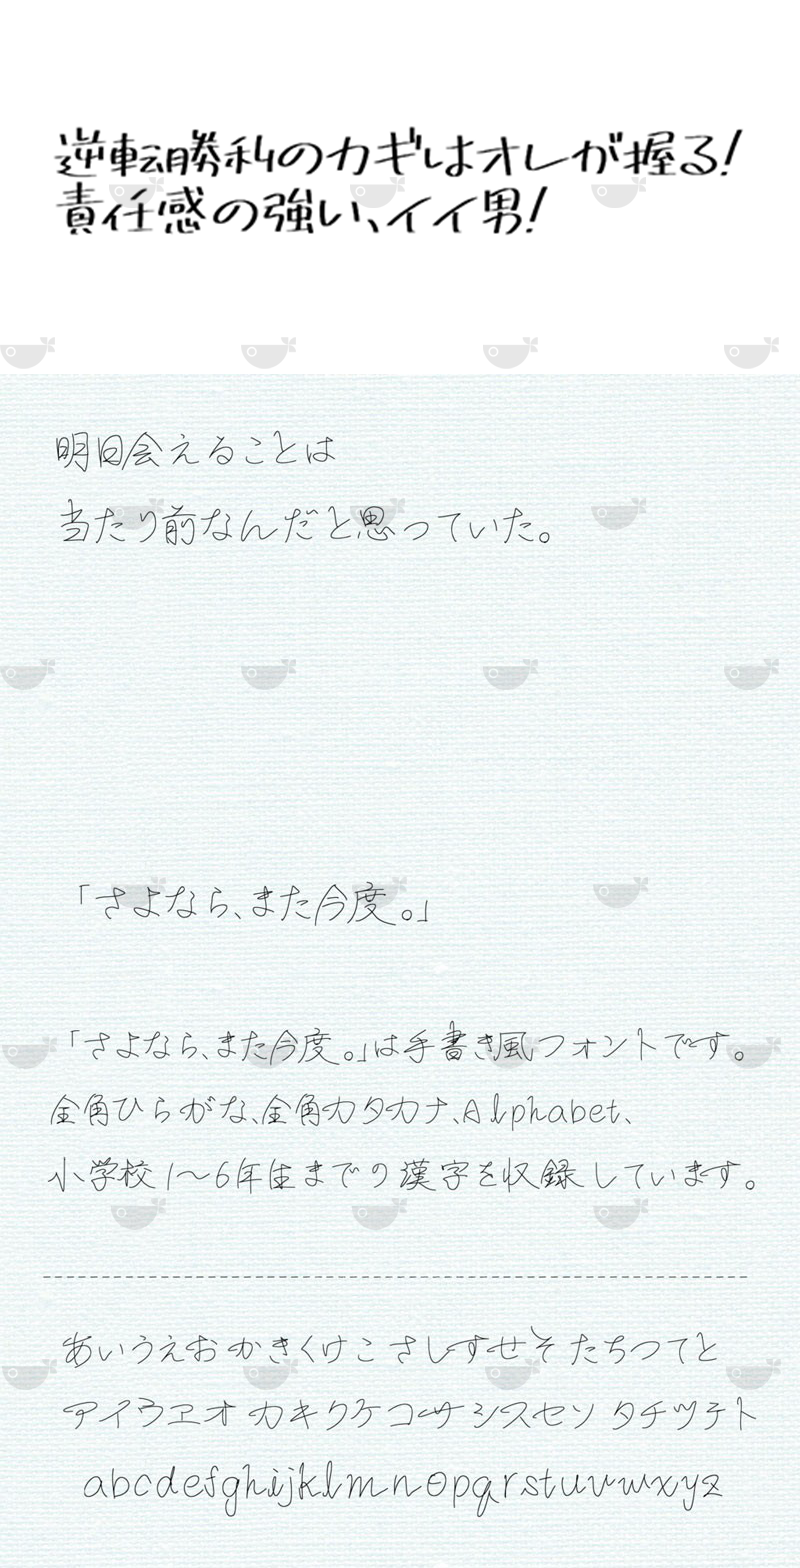 逆転勝利のカギはオレが握る！
責任感の強い、イイ男！
明日会えることは
当たり前なんだと思っていた。
「さよなら、また今度。」
「さよなら、また今度。」は手書き風フォントです。
全角ひらがな、全角カタカナ、Alphabet、
小学校1〜6年生までの漢字を収録しています。
あいうえお かきくけこ さしすせそ たちつてと
アイウエオ カキクケコ サシスセソ タチツテト
abcdefghijklmnopqrstuvwxyz